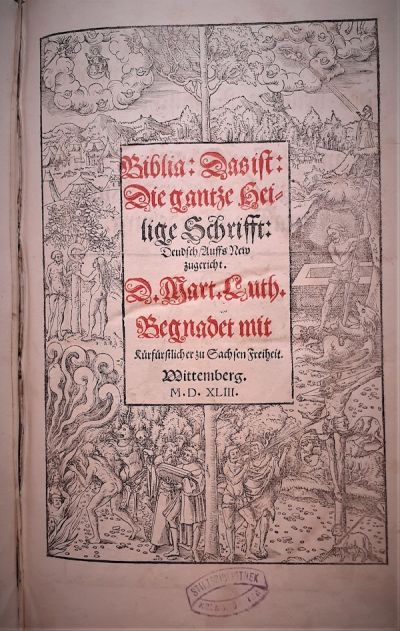 Biblia: Das ist:
Die gantze Hei-
lige Schrifft:
Deudsch / Auffs New
zugericht.
D. Mart. Luth.
Begnadet mit
Kürfürstlicher zu Sachsen Freiheit.
Wittemberg.
M. D. XLIII.